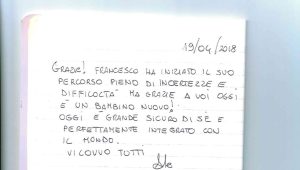 19/04/2018
GRAZIE! FRANCESCO HA INIZIATO IL SUO
PERCORSO PIENO DI INCERTEZZE E
DIFFICOLTÀ MA GRAZIE A VOI OGGI
È UN BAMBINO NUOVO!
OGGI È GRANDE SICURO DI SÉ E
PERFETTAMENTE INTEGRATO CON
IL MONDO.
VI LOVVO TUTTI